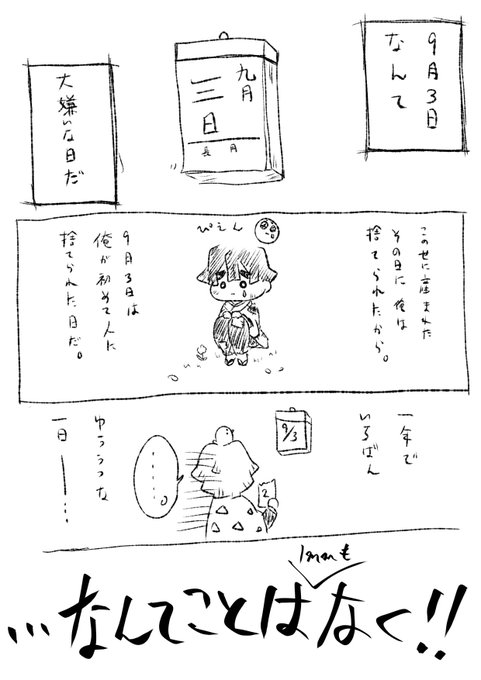 9月3日
なんて
九月
三日
長月
大嫌いな日だ
この世に産まれた
その日に俺は
捨てられたから。
ぴえん
9月3日は
俺が初めて人に
捨てられた日だ。
一年で
いちばん
9/3
2
……。
ゆううつな
一日―――…
1mmも
…なんてことはなく!!